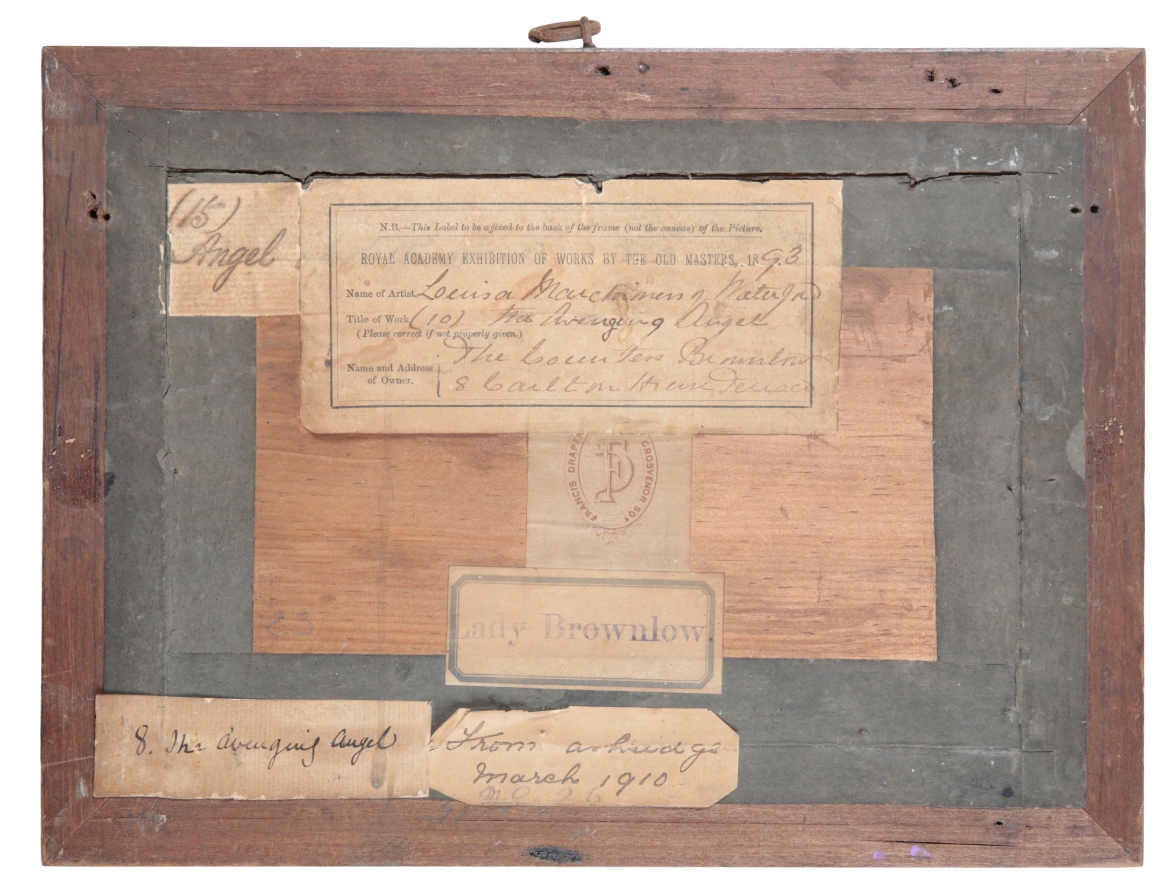 (15)
Angel
N.B.—This Label to be affixed to the back of the frame (not the canvas) of the Picture.
ROYAL ACADEMY EXHIBITION OF WORKS BY THE OLD MASTERS, 1893
Name of Artist Louisa Marchioness of Waterford
Title of Work (10) The Avenging Angel
(Please correct if not properly given.)
Name and Address of Owner.
The Countess Brownlow
8 Carlton House Terrace
FRANCIS DRAPER GROSVENOR SQR
FD
Lady Brownlow.
23
8. The Avenging Angel
From Ashridge
March 1910